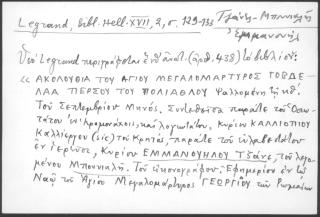 Legrand, Bibl. Hell. XVII, 2, σ. 129-138 Τζάνε-Μπουνιαλῆ
Ἐμμανουὴλ
Ὑπὸ Legrand περιγράφεται ἐνθ' ἀνωτ. (ἀριθ. 438) τὸ βιβλίον:
« ΑΚΟΛΟΥΘΙΑ ΤΟΥ ΑΓΙΟΥ ΜΕΓΑΛΟΜΑΡΤΥΡΟΣ ΓΟΒΔΕ-
ΛΑΑ ΠΕΡΣΟΥ ΤΟΥ ΠΟΛΥΑΘΛΟΥ Ψαλλομένη
Τοῦ Σεπτεμβρίου Μηνός. Συνθεθεῖσα παρὰ τοῦ
ἐν ἱερομονάχοις, καὶ λογιωτάτου, Κυρίου ΚΑΛΛΙΟΠΙΟΥ
Καλλιέργου (sic) τοῦ Κρητός, παρὰ τοῦ εὐλαβεστάτου
ἐν ἱερεῦσι, Κυρίου ΕΜΜΑΝΟΥΗΛΟΥ Τζάνε, τοῦ λεγο-
μένου Μπουνιαλῆ. Τοῦ εἰκονογράφου, Ἐφημερίου ἐν τῷ
Ναῷ τοῦ Ἁγίου Μεγαλομάρτυρος ΓΕΩΡΓΙΟΥ τῶν Ρωμαίων